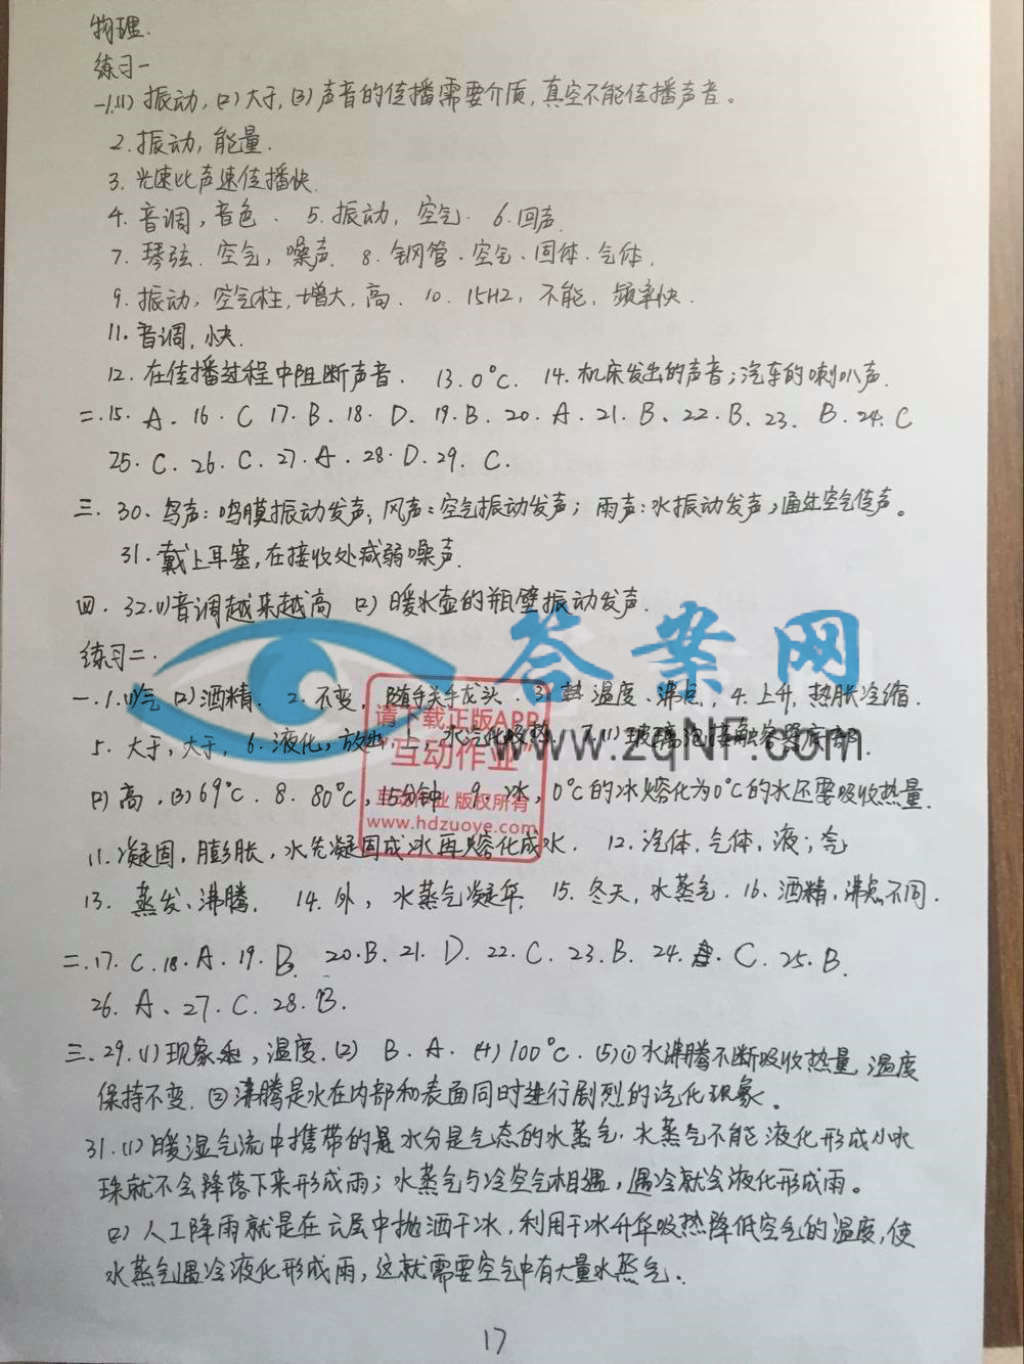 物理.
练习一
一.1.(1) 振动, (2) 大于, (3) 声音的传播需要介质, 真空不能传播声音。
2. 振动, 能量.
3. 光速比声速传播快.
4. 音调, 音色. 5. 振动, 空气. 6. 回声.
7. 琴弦. 空气, 噪声. 8. 钢管. 空气. 固体. 气体.
9. 振动, 空气柱, 增大, 高. 10. 15HZ, 不能, 频率快.
11. 音调, 快.
12. 在传播过程中阻断声音. 13. 0℃. 14. 机床发出的声音; 汽车的喇叭声.
二.15. A. 16. C 17. B. 18. D. 19. B. 20. A. 21. B. 22. B. 23. B. 24. C
25. C. 26. C. 27. A. 28. D. 29. C.
三. 30. 鸟声: 鸣膜振动发声; 风声: 空气振动发声; 雨声: 水振动发声, 通过空气传声。
31. 戴上耳塞, 在接收处减弱噪声.
四. 32.(1) 音调越来越高 (2) 暖水壶的瓶壁振动发声.
答案网
练习二.
一.1.(1)气 (2)酒精. 2. 不变, 随手关手龙头. 3. 温度、沸点, 4. 上升, 热胀冷缩.
请下载正版APP
5. 大于, 大于, 6. 液化, 放出 上, 水汽化吸热 7.(1) 玻璃泡接触容器底部.
"互动作业"
www.zqNF.com
(2) 高, (3) 69℃. 8. 80℃, 15分钟 9. 冰, 0℃的冰熔化为0℃的水还要吸收热量.
互动作业 版权所有
www.hdzuoye.com
11. 凝固, 膨胀, 水先凝固成冰再熔化成水. 12. 汽体, 气体, 液; 气
13. 蒸发、沸腾. 14. 外, 水蒸气凝华. 15. 冬天, 水蒸气. 16. 酒精, 沸点不同.
二.17. C. 18. A. 19. B. 20. B. 21. D. 22. C. 23. B. 24. C. 25. B.
26. A. 27. C. 28. B.
三.29.(1) 现象, 温度. (2) B. A. (4) 100℃. (5) ① 水沸腾不断吸收热量, 温度
保持不变. ② 沸腾是水在内部和表面同时进行剧烈的汽化现象。
31.(1) 暖湿气流中携带的是水分是气态的水蒸气. 水蒸气不能液化形成小水
珠就不会降落下来形成雨; 水蒸气与冷空气相遇, 遇冷就会液化形成雨。
(2) 人工降雨就是在云层中抛洒干冰, 利用干冰升华吸热降低空气的温度, 使
水蒸气遇冷液化形成雨, 这就需要空气中有大量水蒸气.
17